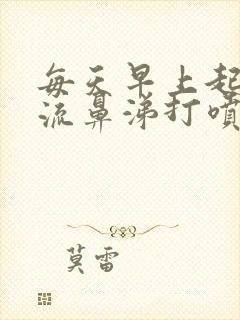 每天早上起
流鼻涕打噴
莫雷